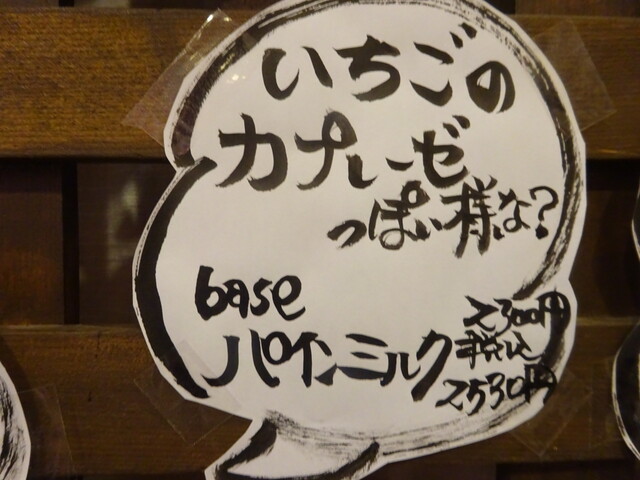 いちごの
カプレーゼ
っぽい様な?
base
パインミルク
2300円
税込
2530円